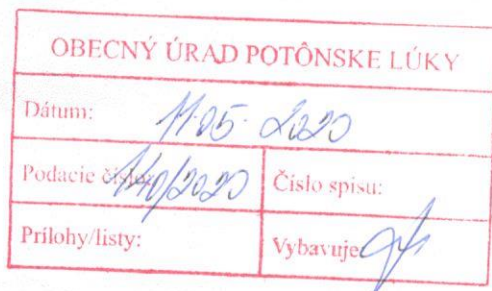 OBECNÝ ÚRAD POTÔNSKE LÚKY
Dátum: 11.05.2020
Podacie číslo: 140/2020 Číslo spisu:
Prílohy/listy: Vybavuje